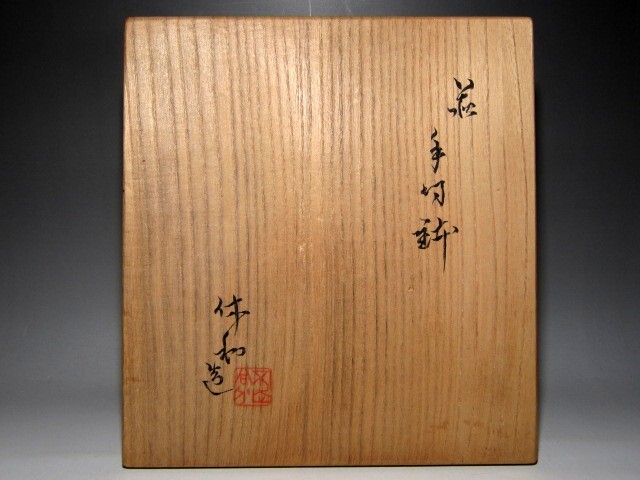 萩
手付鉢
休和造